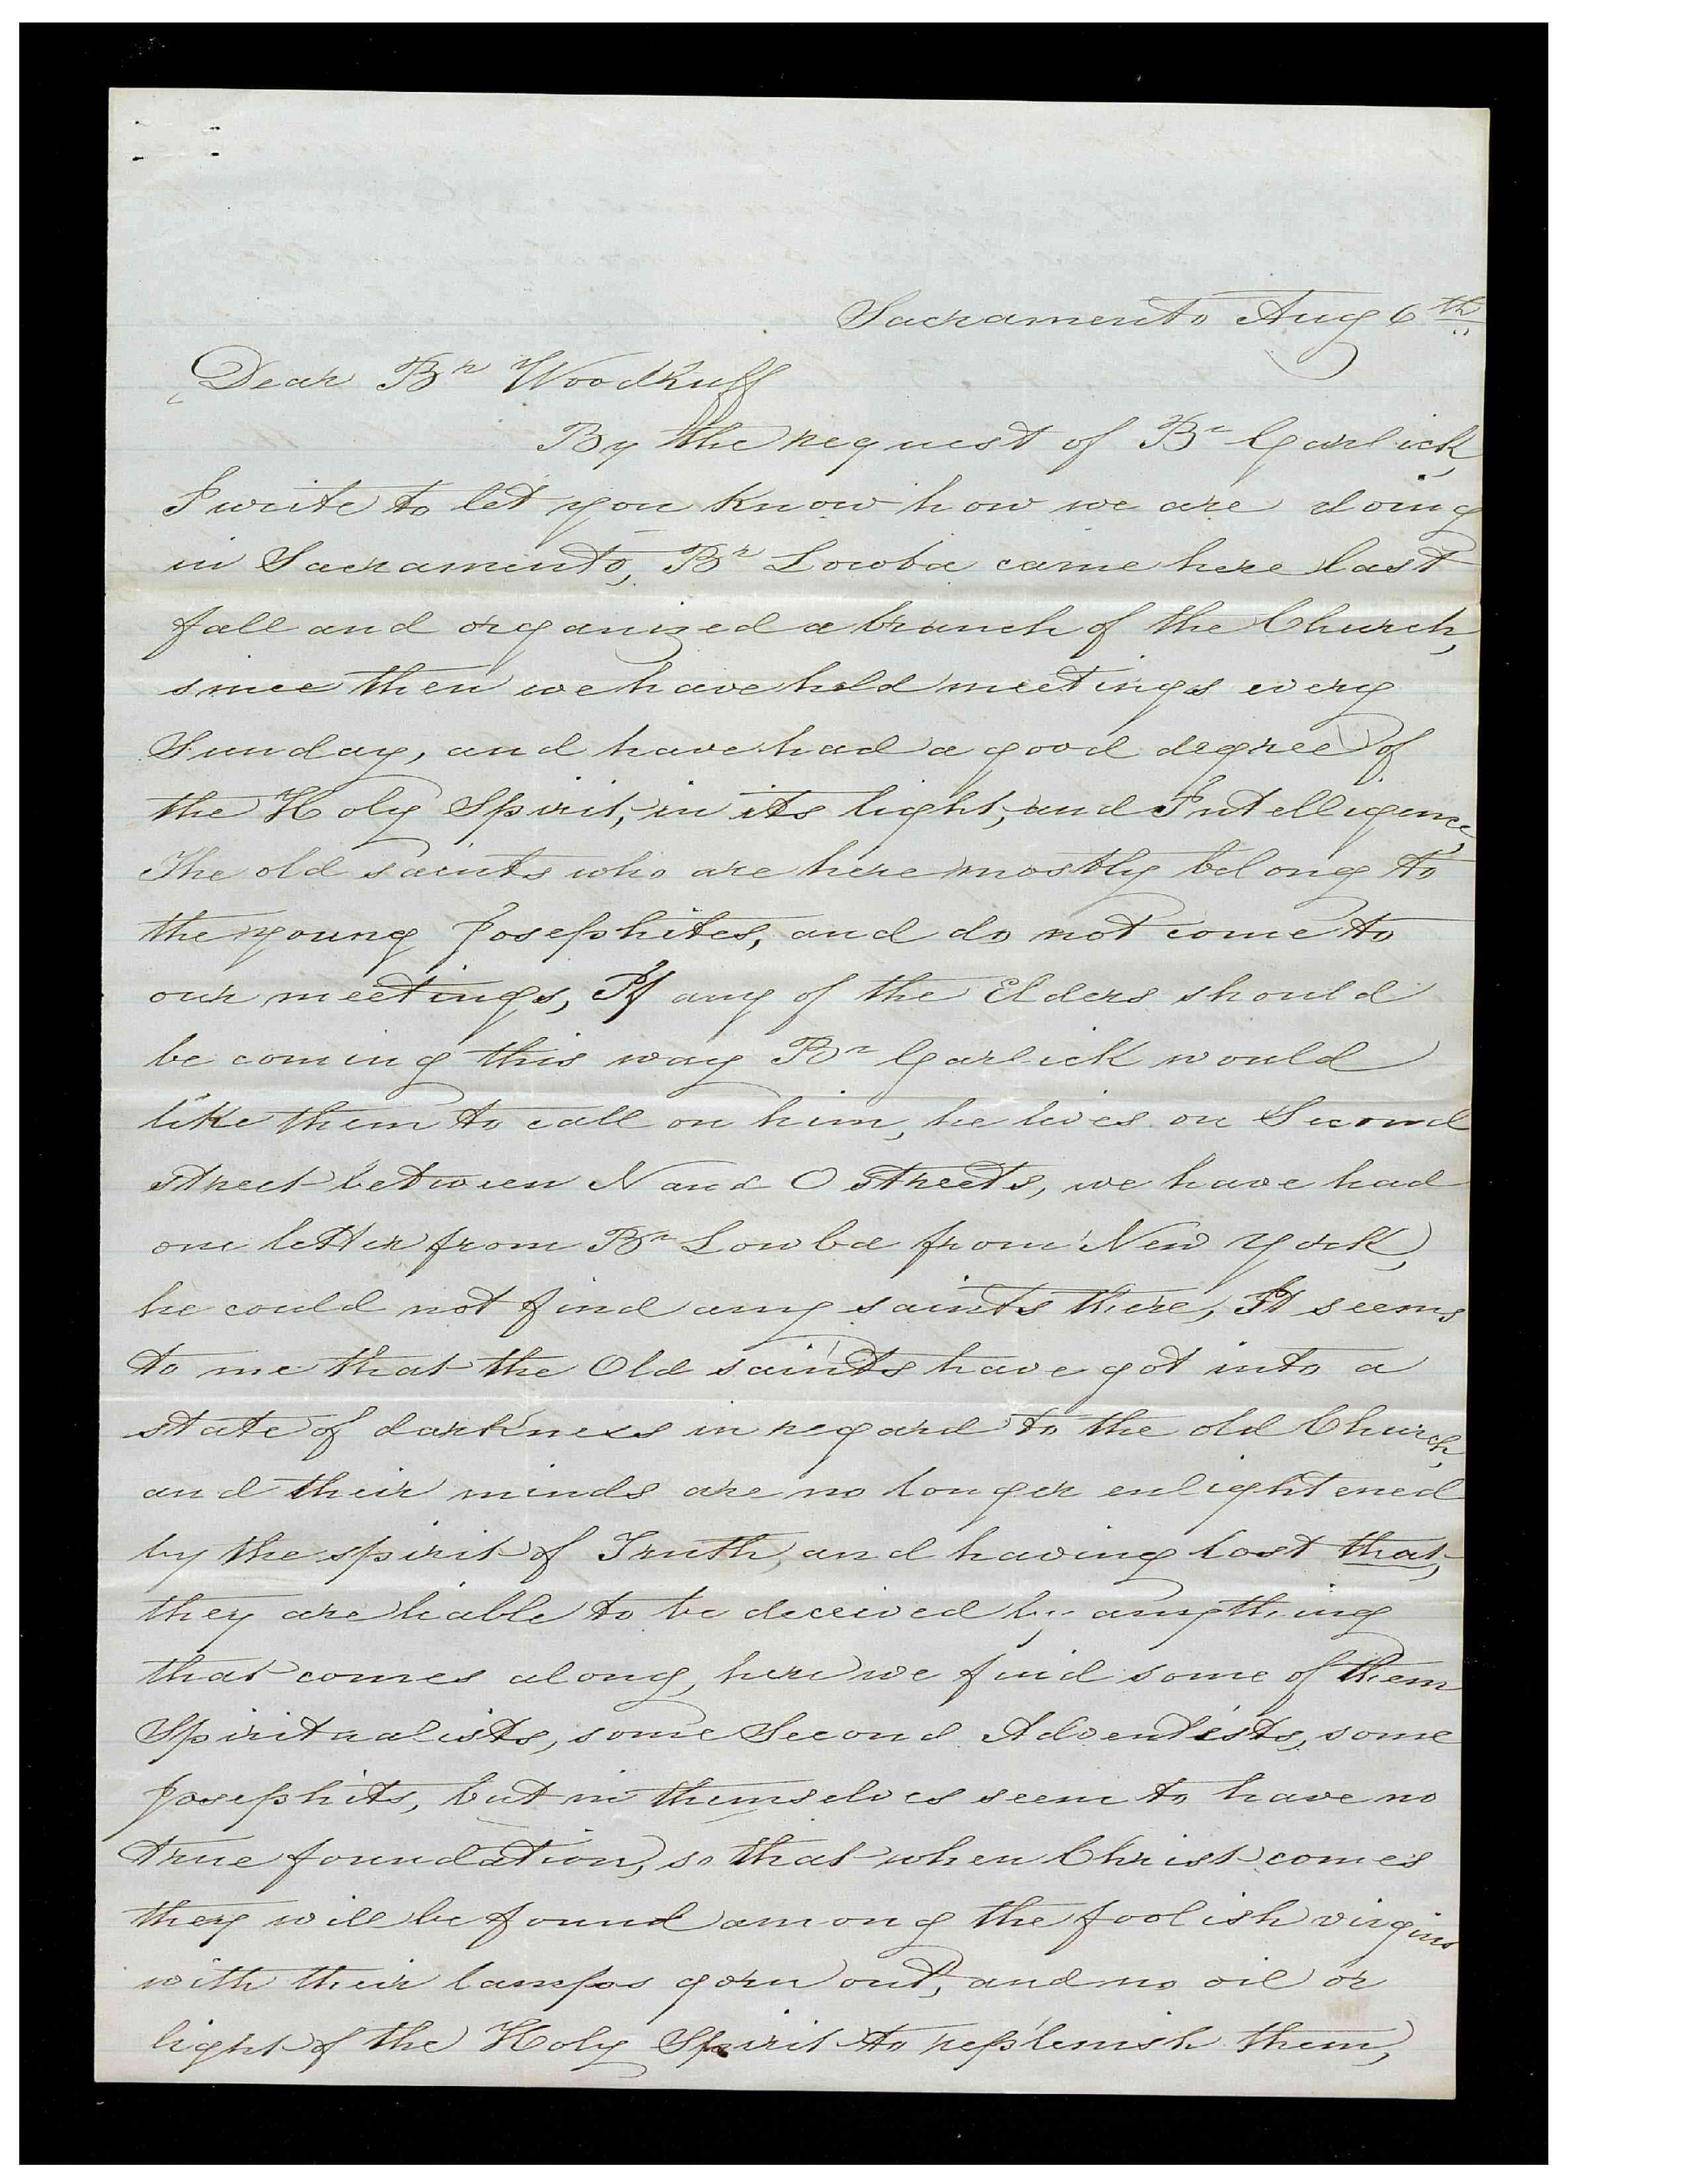 Sacramento Aug 6th
Dear Br Woodruff
By the request of Br Garlick,
I write to let you know how we are doing
in Sacramento, Br Lowba came here last
fall and organized a branch of the Church,
since then we have held meetings every
Sunday, and have had a good degree of
the Holy Spirit, in its light, and Intelligence,
The old saints who are here mostly belong to
the young Josephites, and do not come to
our meetings, If any of the Elders should
be coming this way Br Garlick would
like them to call on him, he lives on Second
street between N and O streets, we have had
one letter from Br Lowba from New York,
he could not find any saints there, It seems
to me that the Old saints have got into a
state of darkness in regard to the old Church,
and their minds are no longer enlightened
by the spirit of Truth, and having lost that,
they are liable to be deceived by anything
that comes along, here we find some of them
Spiritualists, some Second Adventists, some
Josephits, but in themselves seem to have no
true foundation, so that when Christ comes
they will be found among the foolish virgins
with their lamps gorn out, and no oil or
light of the Holy Spirit to replenish them,